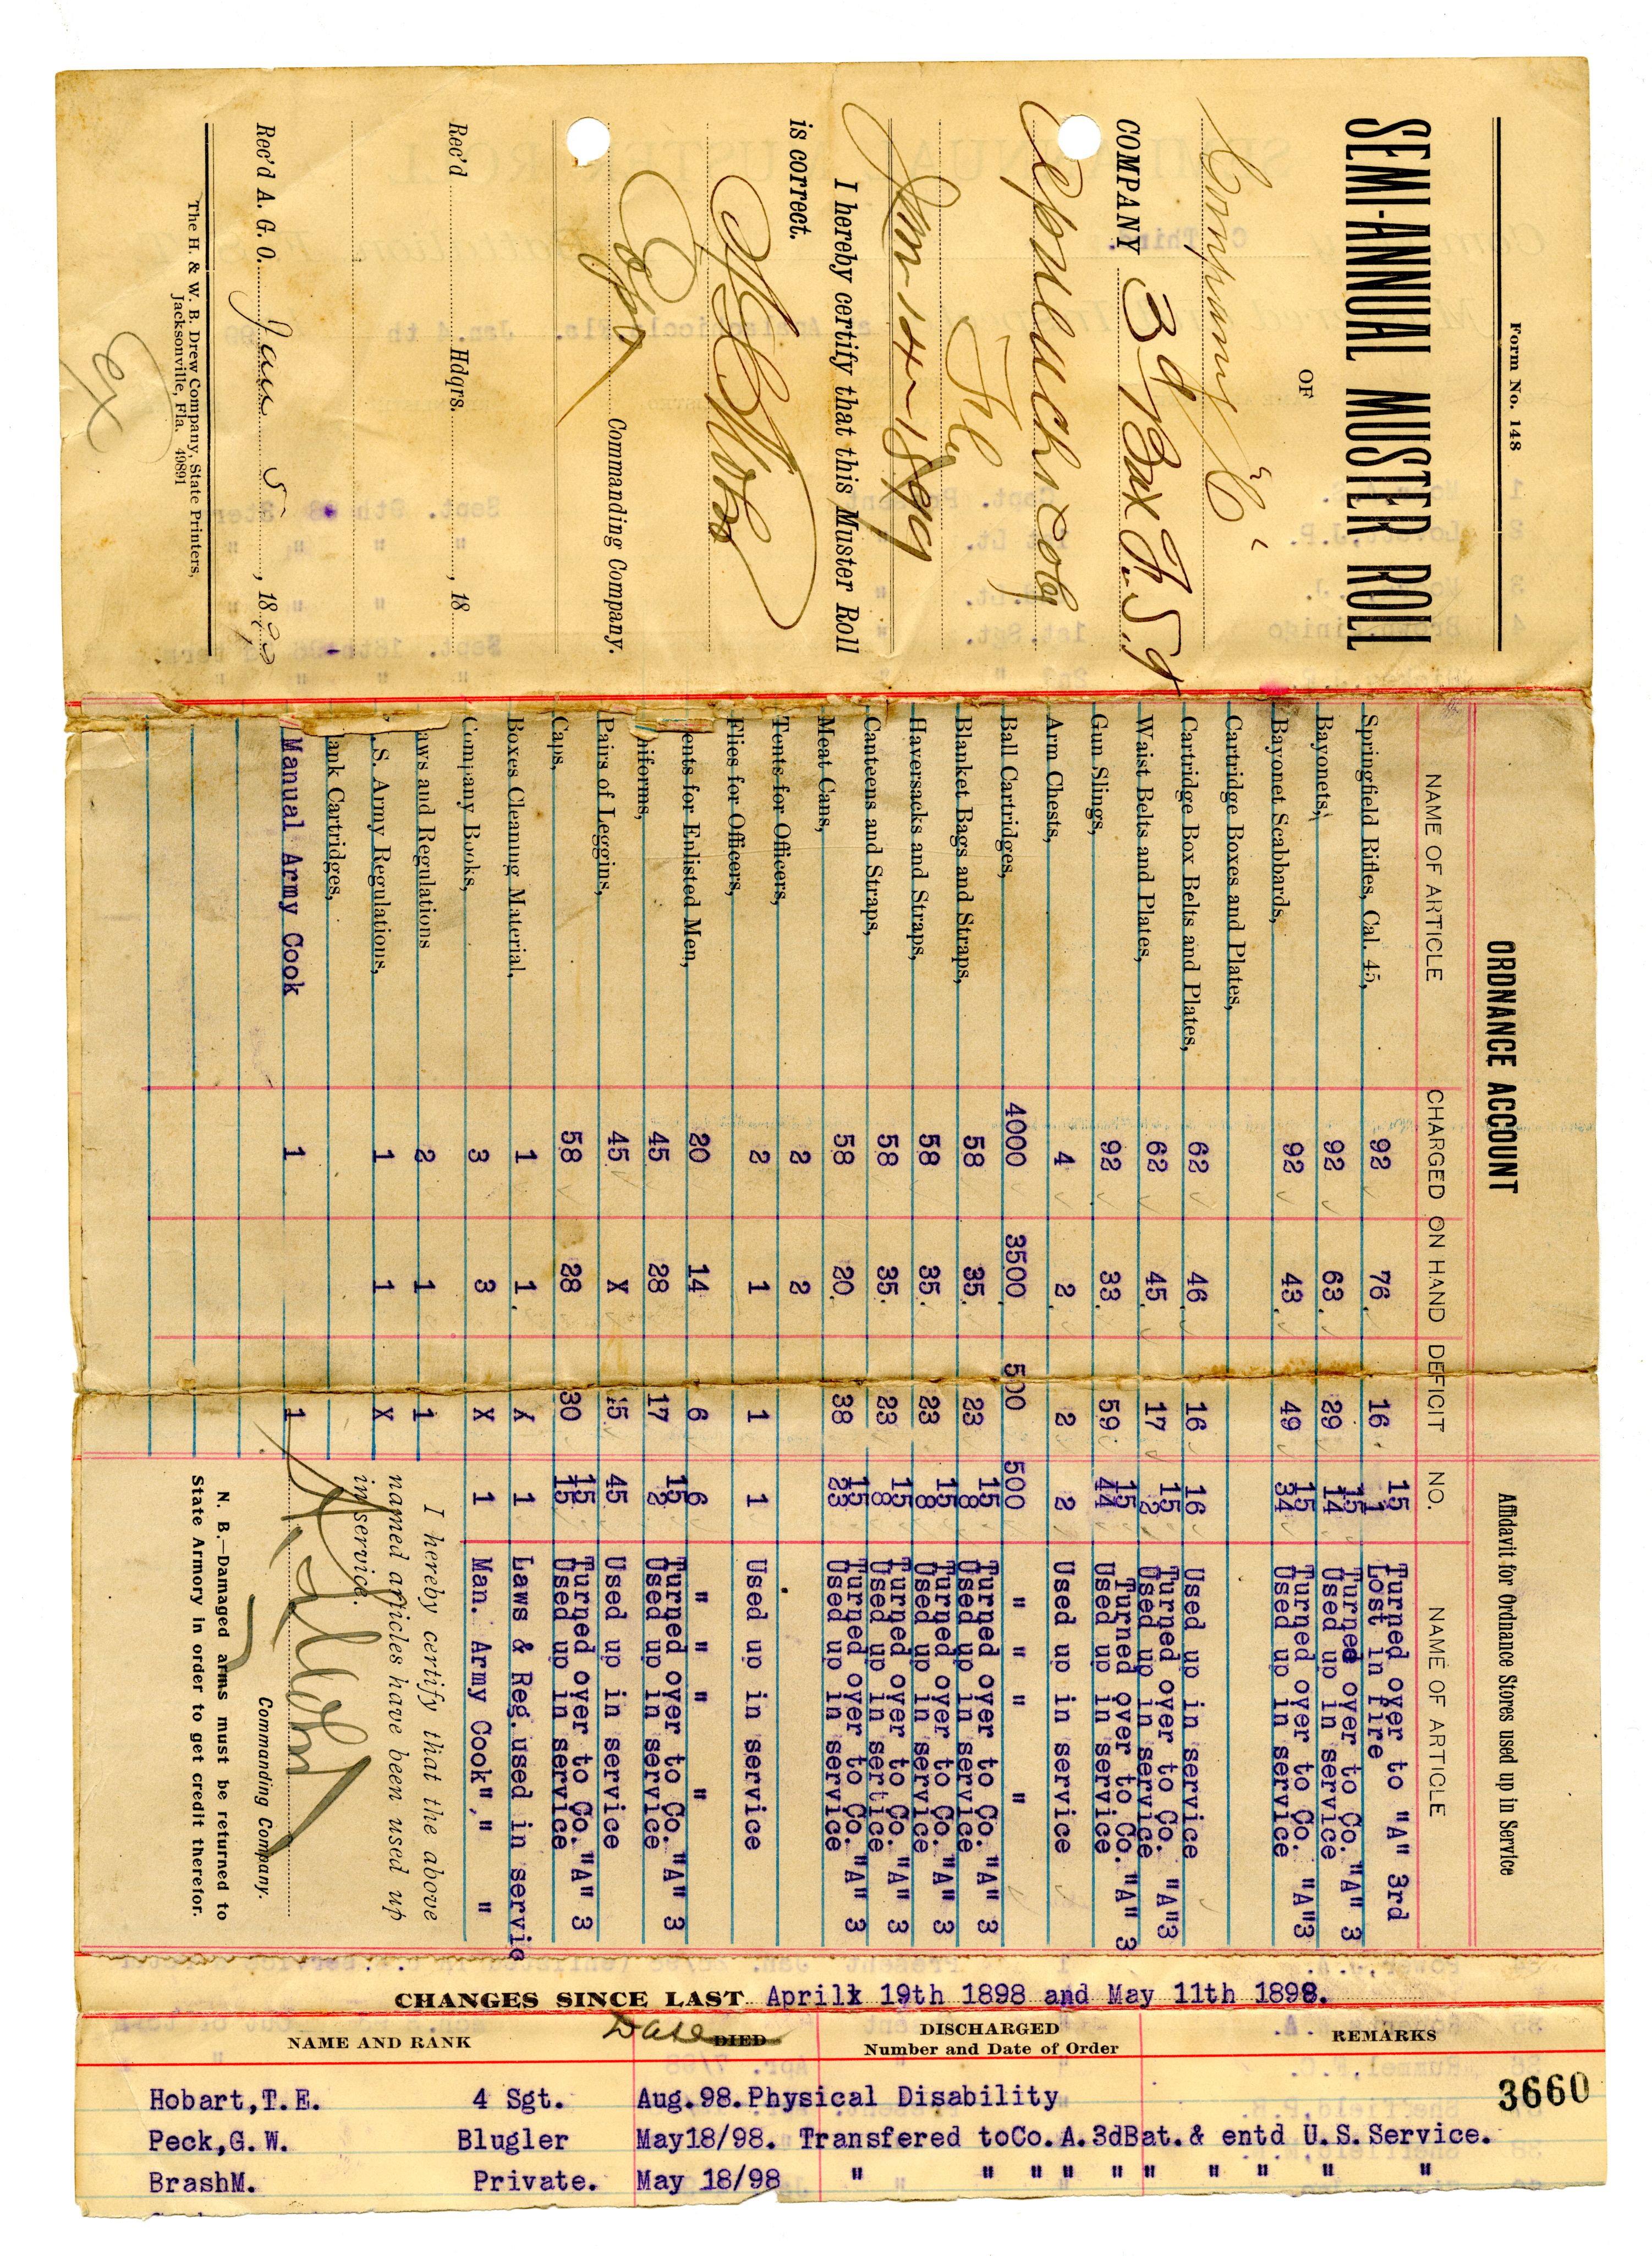 Form No. 148
SEMI-ANNUAL MUSTER ROLL
OF
Company "C"
COMPANY 3d Bat Fl. S. g
Apalachicola
Fla
Jan 14 - 1899
I hereby certify that this Muster Roll
is correct.
Capt
Commanding Company.
Rec'd Hdqrs. , 18
Rec'd A. G. O. Jan 5 , 1899
The H. & W. B. Drew Company, State Printers,
Jacksonville, Fla. 49891
ORDNANCE ACCOUNT
NAME OF ARTICLE CHARGED ON HAND DEFICIT
Springfield Rifles, Cal. 45, 92 76 16
Bayonets, 92 63 29
Bayonet Scabbards, 92 43 49
Cartridge Boxes and Plates,
Cartridge Box Belts and Plates, 62 46 16
Waist Belts and Plates, 62 45 17
Gun Slings, 92 33 59
Arm Chests, 4 2 2
Ball Cartridges, 4000 3500 500
Blanket Bags and Straps, 58 35 23
Haversacks and Straps, 58 35 23
Canteens and Straps, 58 35 23
Meat Cans, 58 20 38
Tents for Officers, 2 2
Flies for Officers, 2 1 1
ents for Enlisted Men, 20 14 6
niforms, 45 28 17
Pairs of Leggins, 45 X 45
Caps, 58 28 30
Boxes Cleaning Material, 1 1 X
Company Books, 3 3 X
aws and Regulations 2 1 1
. S. Army Regulations, 1 1 X
ank Cartridges,
Manual Army Cook 1 1
Affidavit for Ordnance Stores used up in Service
NO. NAME OF ARTICLE
15 Turned over to "A" 3rd
1 Lost in Fire
15 Turned over to Co. "A" 3
14 Used up in service
15 Turned over to Co. "A"3
34 Used up in service
16 Used up in service
15 Turned over to Co. "A"3
2 Used up in service
15 Turned over to Co. "A" 3
44 Used up in service
2 Used up in service
500 " " " "
15 Turned over to Co. "A" 3
8 Used up in service
15 Turned over to Co. "A" 3
8 Used up in service
15 Turned over to Co. "A" 3
8 Used up in sertice
15 Turned over to Co. "A" 3
23 Used up in service
1 Used up in service
6 " " " "
15 Turned over to Co. "A" 3
2 Used up in service
45 Used up in service
15 Turned over to Co. "A" 3
15 Used up in service
1 Laws & Reg. used in servic
1 Man. Army Cook" " "
I hereby certify that the above
named articles have been used up
in service.
Commanding Company.
N. B.—Damaged arms must be returned to
State Armory in order to get credit therefor.
CHANGES SINCE LAST Aprilx 19th 1898 and May 11th 1898.
NAME AND RANK Date DIED DISCHARGED Number and Date of Order REMARKS
3660
Hobart,T.E. 4 Sgt. Aug.98. Physical Disability
Peck,G.W. Blugler May18/98. Transfered toCo.A.3dBat.& entd U.S.Service.
BrashM. Private. May 18/98 " " " " " " " " " "